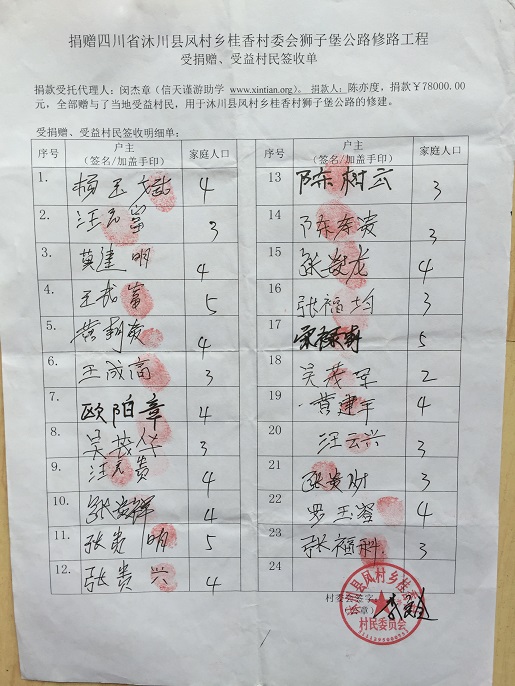 捐赠四川省沐川县凤村乡桂香村委会狮子堡公路修路工程
受捐赠、受益村民签收单
捐款受托代理人:闵杰章(信天谨游助学 www.xintian.org)。捐款人:陈亦度,捐款￥78000.00
元,全部赠与了当地受益村民,用于沐川县凤村乡桂香村狮子堡公路的修建。
受捐赠、受益村民签收明细单:
序号 户主 (签名/加盖手印) 家庭人口
1. 杨玉斌 4
2. 汪云 3
3. 黄建明 4
4. 王成富 5
5. 4
6. 王成高 3
7. 欧阳章 4
8. 吴茂华 3
9. 汪云贵 4
10. 张贵祥 4
11. 张贵明 5
12. 张贵兴 4
序号 户主 (签名/加盖手印) 家庭人口
13 陈树云 3
14 陈 3
15 张 龙 4
16 张福均 3
17 5
18 吴茂军 2
19 黄建军 4
20 汪云兴 3
21 张贵财 3
22 罗玉 4
23 张福科 3
24
村委会签字
(盖章)
沐川县凤村乡桂香
村民委员会